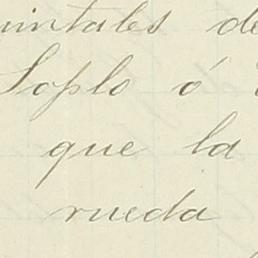 quintales de
Soplo ó
que la
rueda